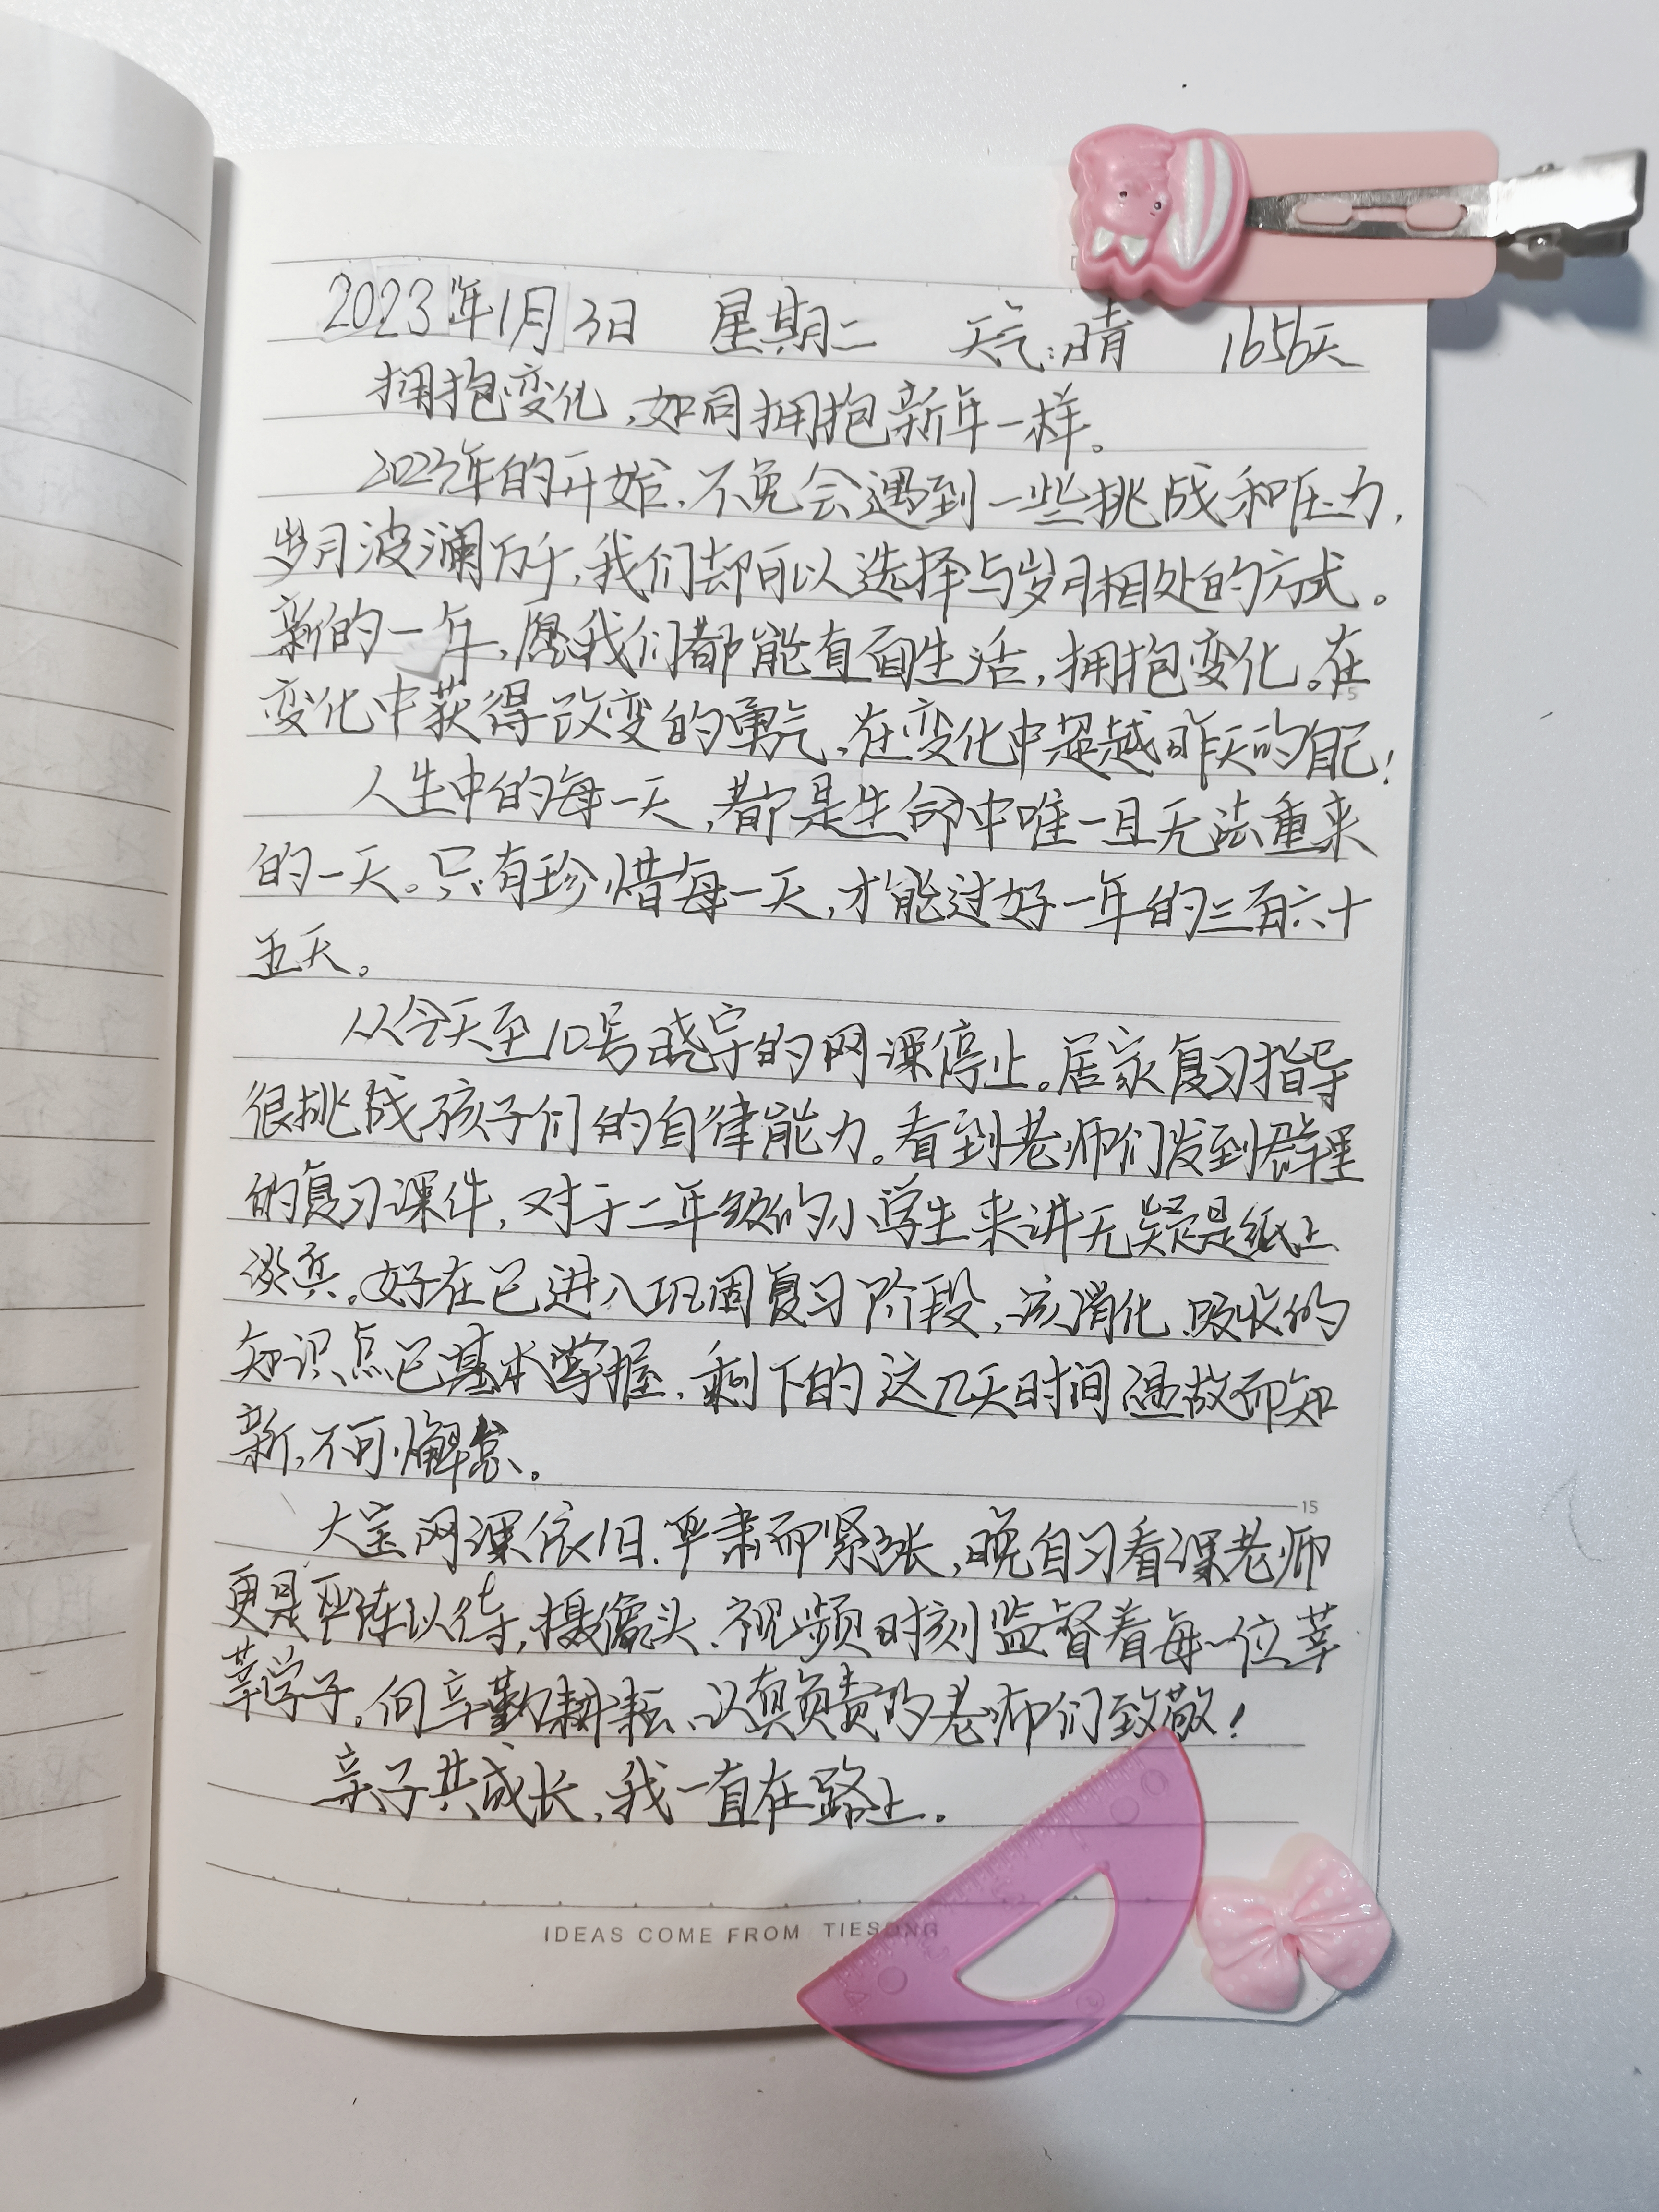 2023年1月3日 星期二 天气:晴 1656天
拥抱变化,如同拥抱新年一样。
2023年的开始,不免会遇到一些挑战和压力,
岁月波澜万千,我们却可以选择与岁月相处的方式。
新的一年,愿我们都能直面生活,拥抱变化。在
变化中获得改变的勇气,在变化中超越昨天的自己!
人生中的每一天,都是生命中唯一且无法重来
的一天。只有珍惜每一天,才能过好一年的三百六十
五天。
从今天至10号晓宇的网课停止。居家复习指导
很挑战孩子们的自律能力。看到老师们发到群里
的复习课件,对于二年级的小学生来讲无疑是纸上
谈兵。好在已进入巩固复习阶段,该消化、吸收的
知识点已基本掌握,剩下的这几天时间温故而知
新,不可懈怠。
大宝网课依旧严肃而紧张,晚自习看课老师
更是严阵以待,摄像头、视频时刻监督着每一位莘
莘学子。向辛勤耕耘、认真负责的老师们致敬!
亲子共成长,我一直在路上。
5
15
IDEAS COME FROM TIESONG